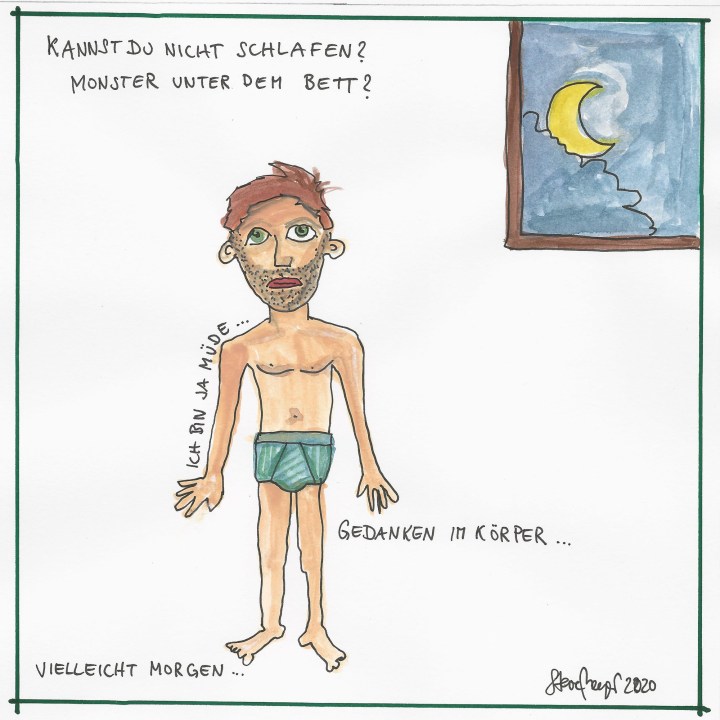 KANNST DU NICHT SCHLAFEN?
MONSTER UNTER DEM BETT?
ICH BIN JA MÜDE...
GEDANKEN IM KÖRPER...
VIELLEICHT MORGEN...
2020